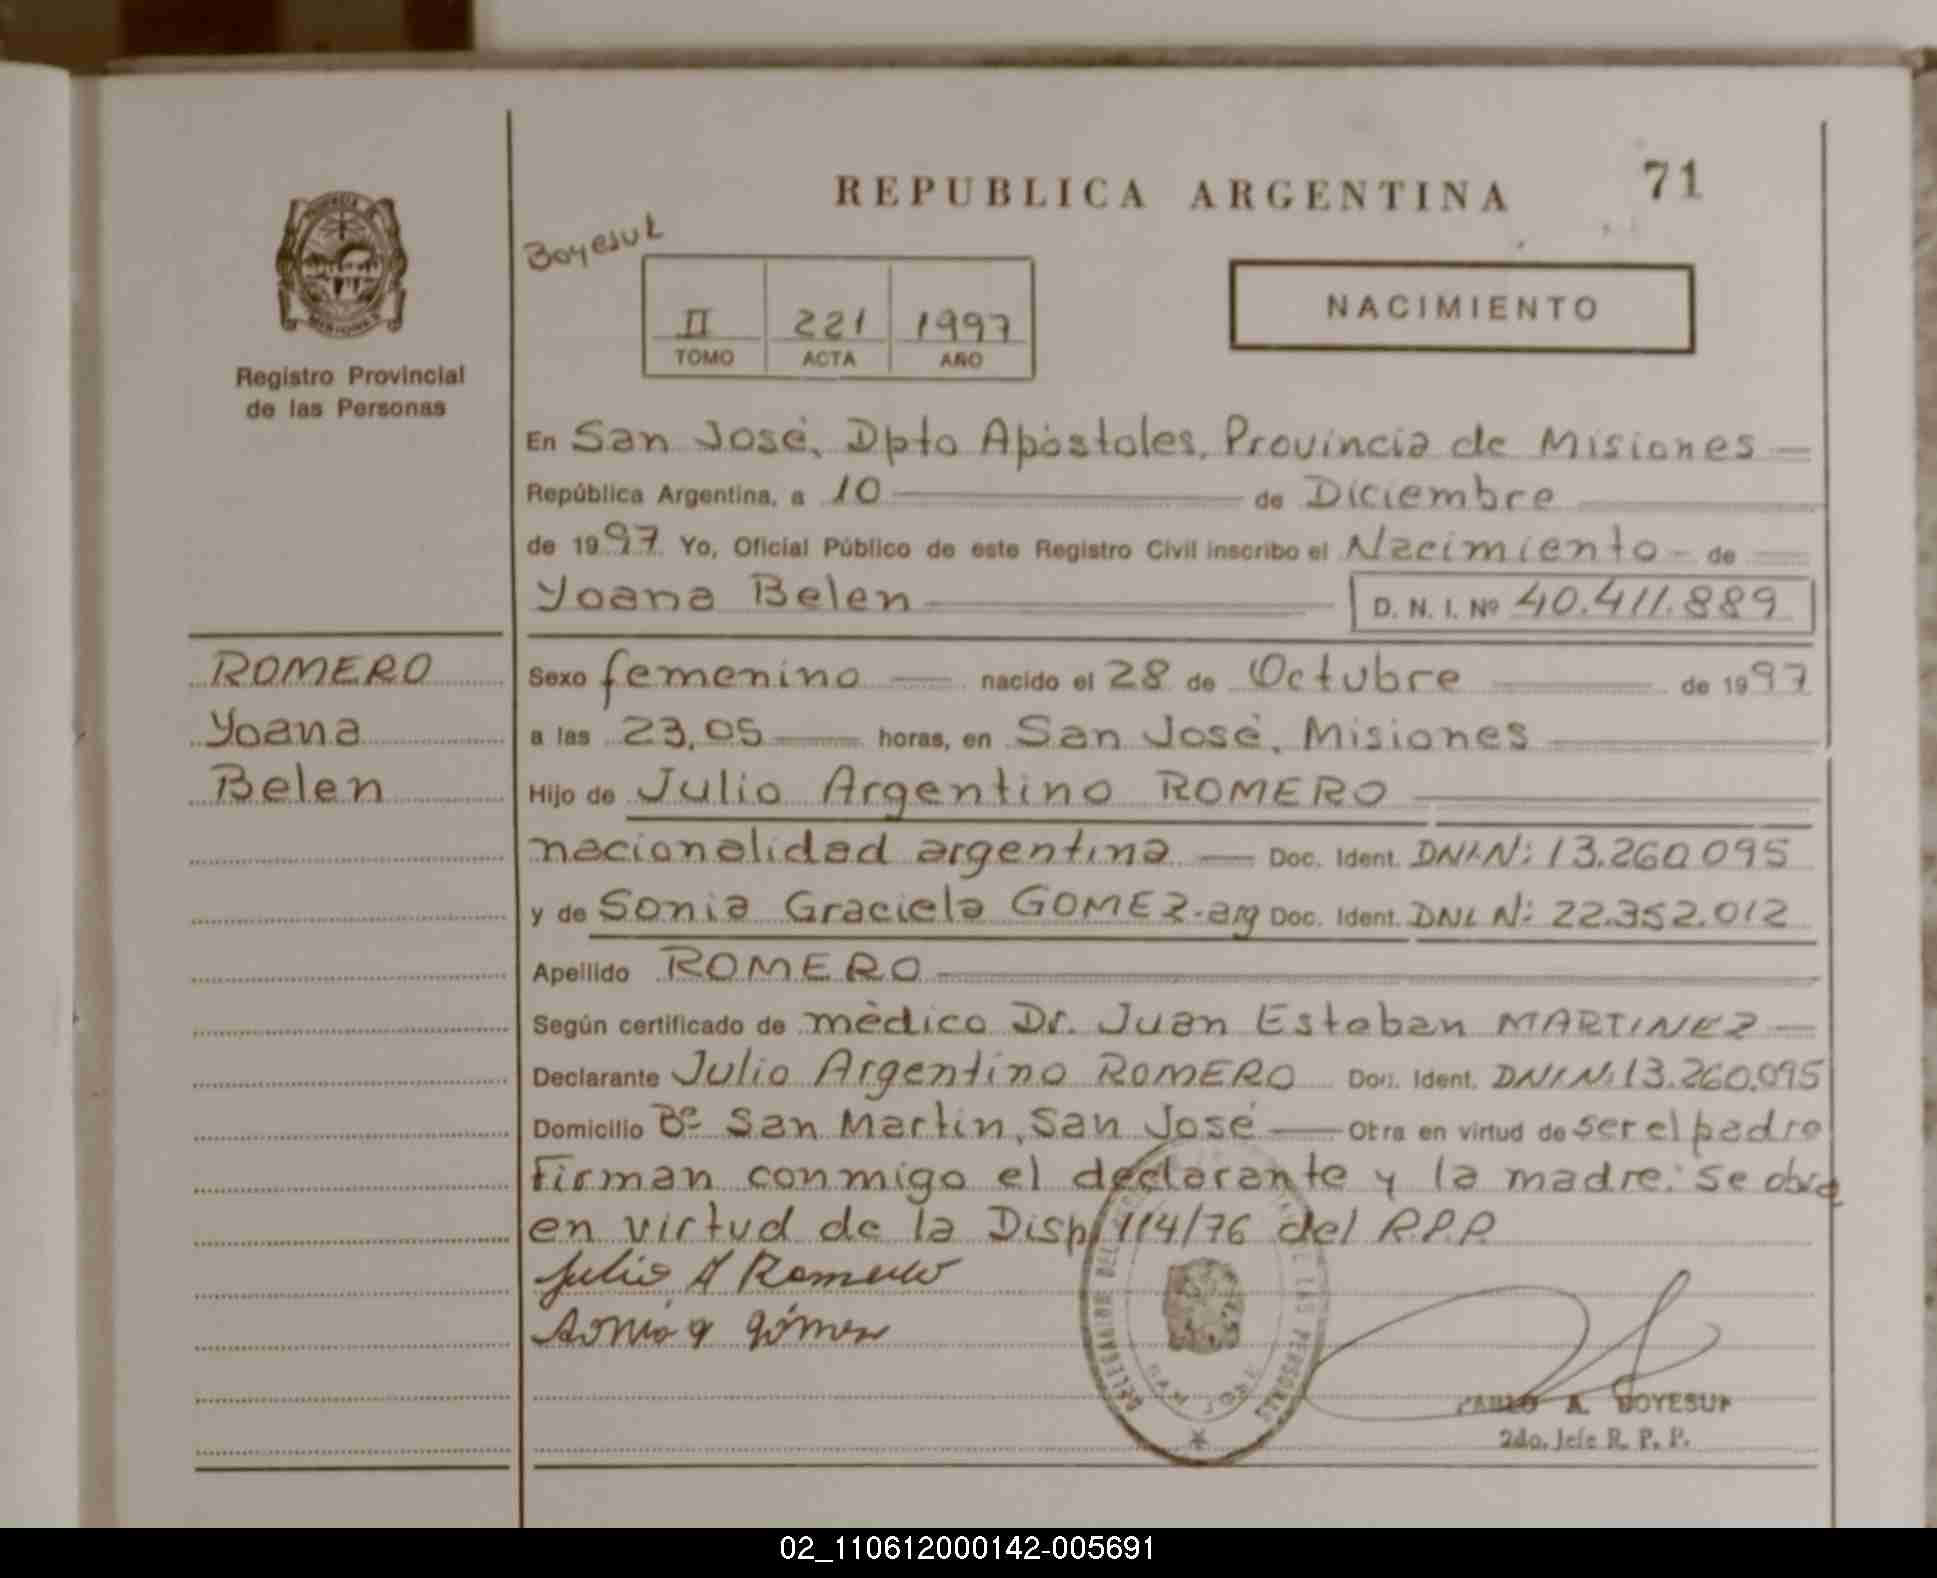 REPUBLICA ARGENTINA
71
Boyesuk
II 221 1997
TOMO ACTA AÑO
NACIMIENTO
PROVINCIA DE
MISIONES
Registro Provincial
de las Personas
En San José, Dpto Apóstoles, Provincia de Misiones
República Argentina, a 10 de Diciembre
de 1997 Yo, Oficial Público de este Registro Civil inscribo el Nacimiento de
Yoana Belen D. N. I. Nº 40.411.889
ROMERO
Yoana
Belen
Sexo femenino nacido el 28 de Octubre de 1997
a las 23,05 horas, en San José, Misiones
Hijo de Julio Argentino ROMERO
nacionalidad argentina Doc. Ident. DNI.N: 13.260.095
y de Sonia Graciela GOMEZ-arg Doc. Ident. DNI. N: 22.352.012
Apellido ROMERO
Según certificado de mèdico Dr. Juan Esteban MARTINEZ
Declarante Julio Argentino ROMERO Doc. Ident. DNI.N: 13.260.095
Domicilio Bº San Martin, San José Otra en virtud de ser el padre
Firman conmigo el declarante y la madre. Se obra
en virtud de la Disp/ 114/76 del R.P.P.
Julio A Romero
Sonia G Gómez
DELEGACION DEL DE LAS PERSONAS
PABLO A. BOYESUK
2do. Jefe R. P. P.
02_110612000142-005691